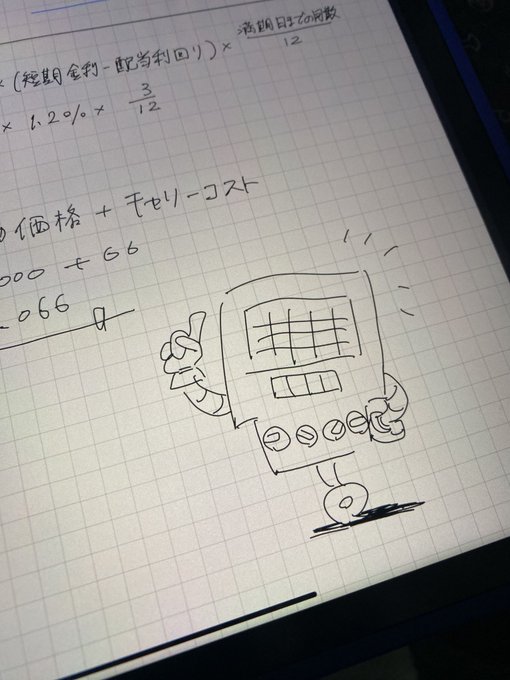 × (短期金利 - 配当利回り) × 満期日までの月数 / 12
× 1.20% × 3 / 12
価格 + キャリーコスト
000 + 66
066